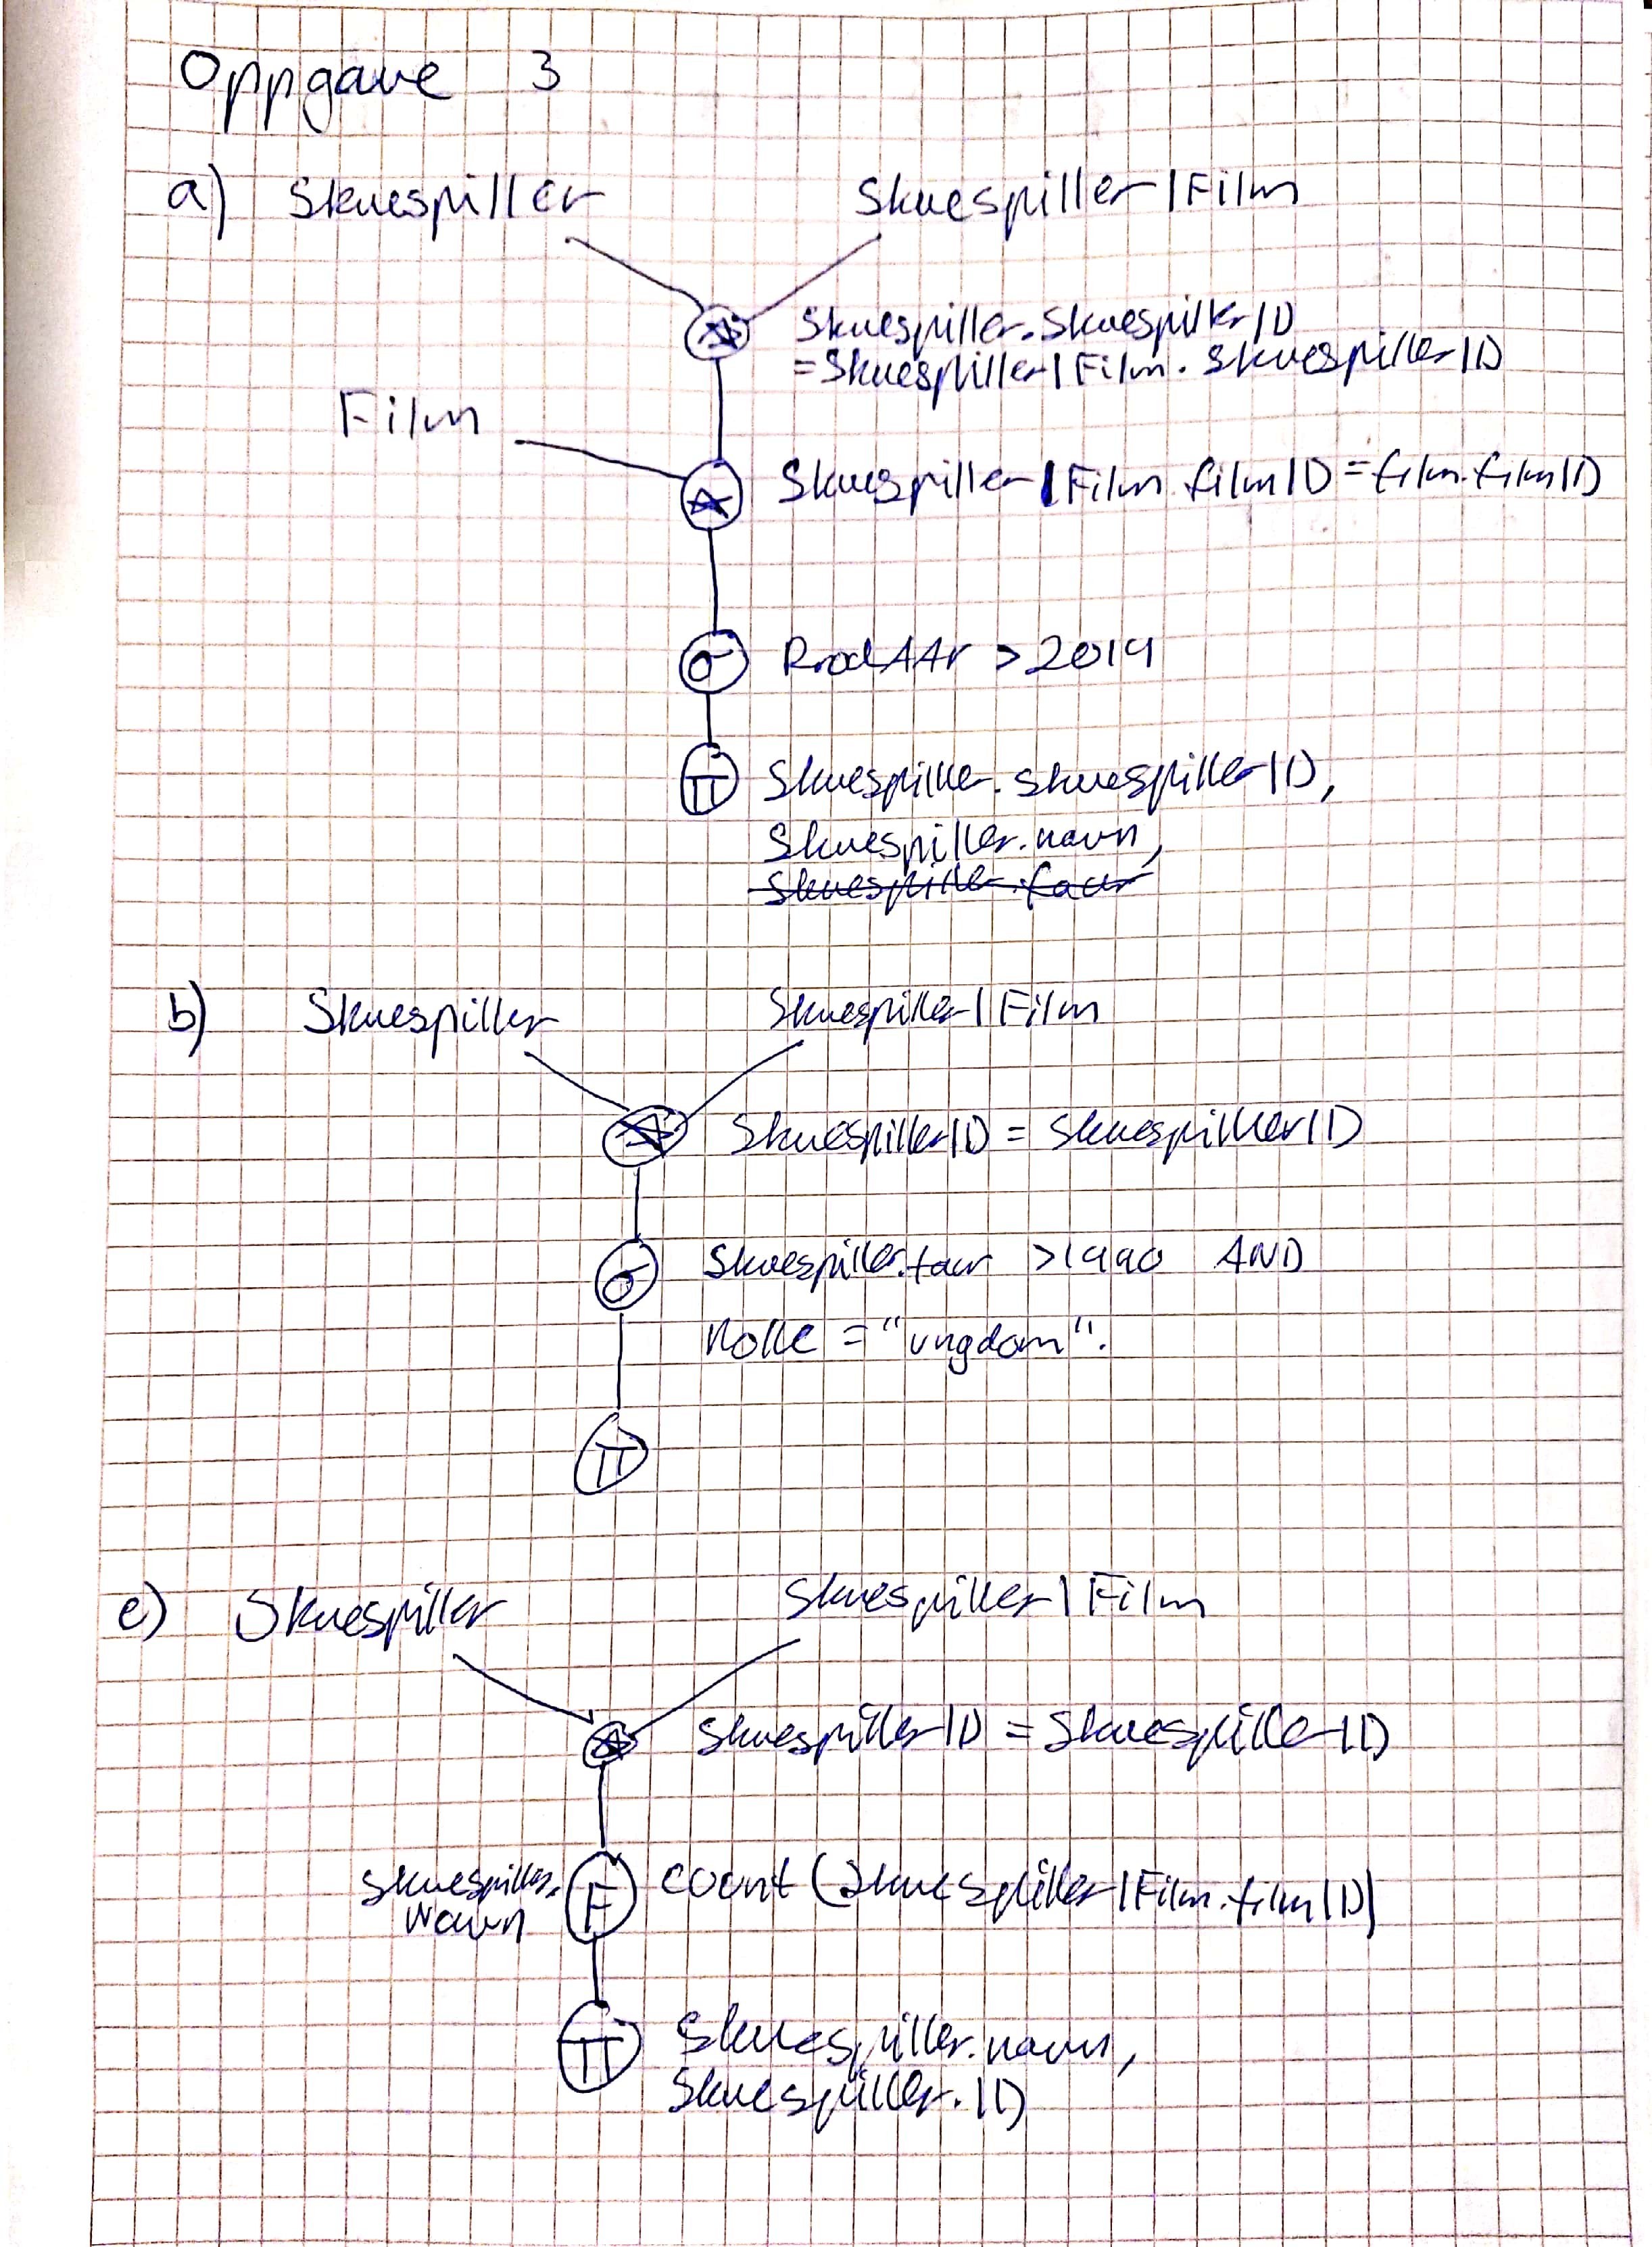 Oppgave 3
a) Skuespiller SkuespillerIFilm
Skuespiller.SkuespillerID
=SkuespillerIFilm.SkuespillerID
Film
SkuespillerIFilm.filmID = film.filmID
σ ProdAAr > 2019
π Skuespiller.skuespillerID,
Skuespiller.navn,
b) Skuespiller SkuespillerIFilm
SkuespillerID = SkuespillerID
σ Skuespiller.faar >1990 AND
Rolle = "ungdom".
π
c) Skuespiller SkuespillerIFilm
SkuespillerID = SkuespillerID
Skuespiller.
Navn
F count(SkuespillerIFilm.filmID)
π Skuespiller.navn,
Skuespiller.ID